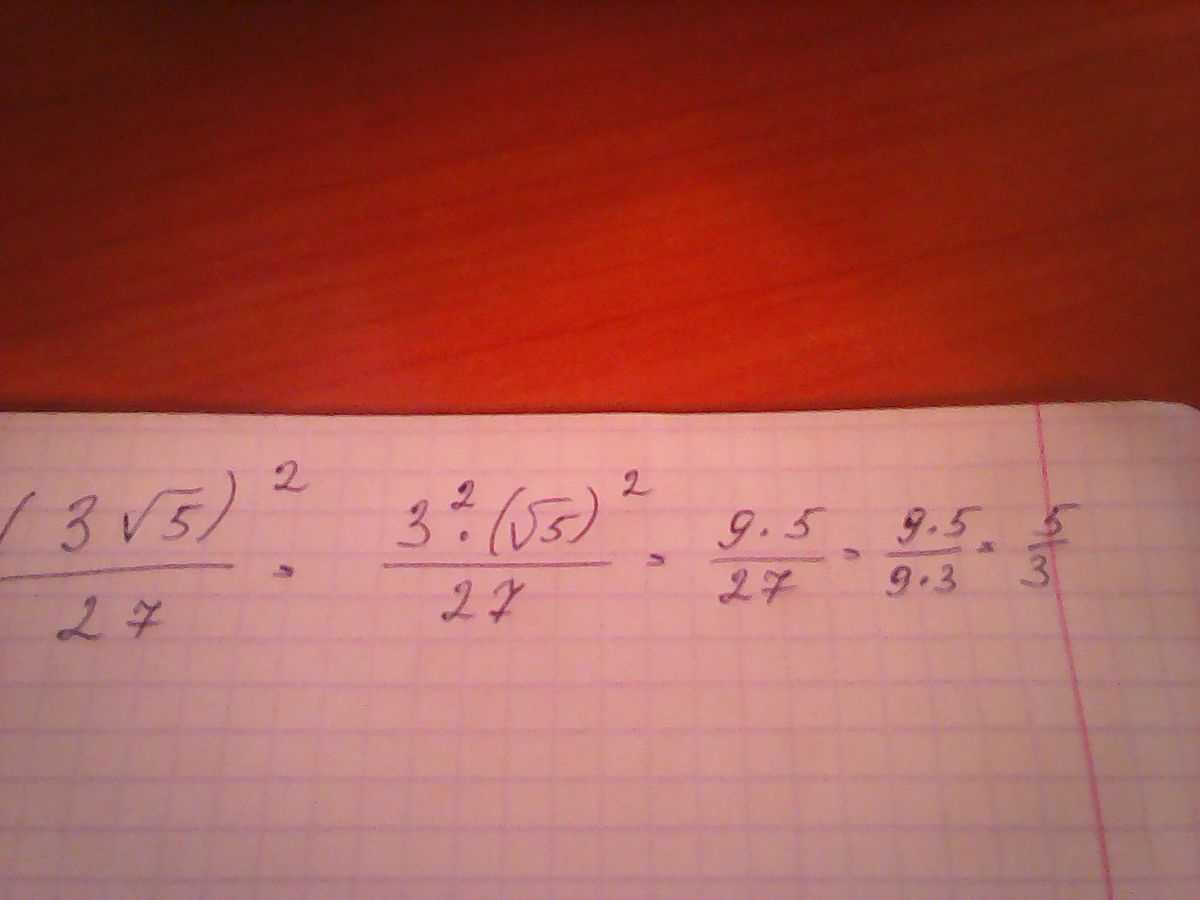 (3√5)²/27 = 3²·(√5)²/27 = 9·5/27 = 9·5/9·3 = 5/3